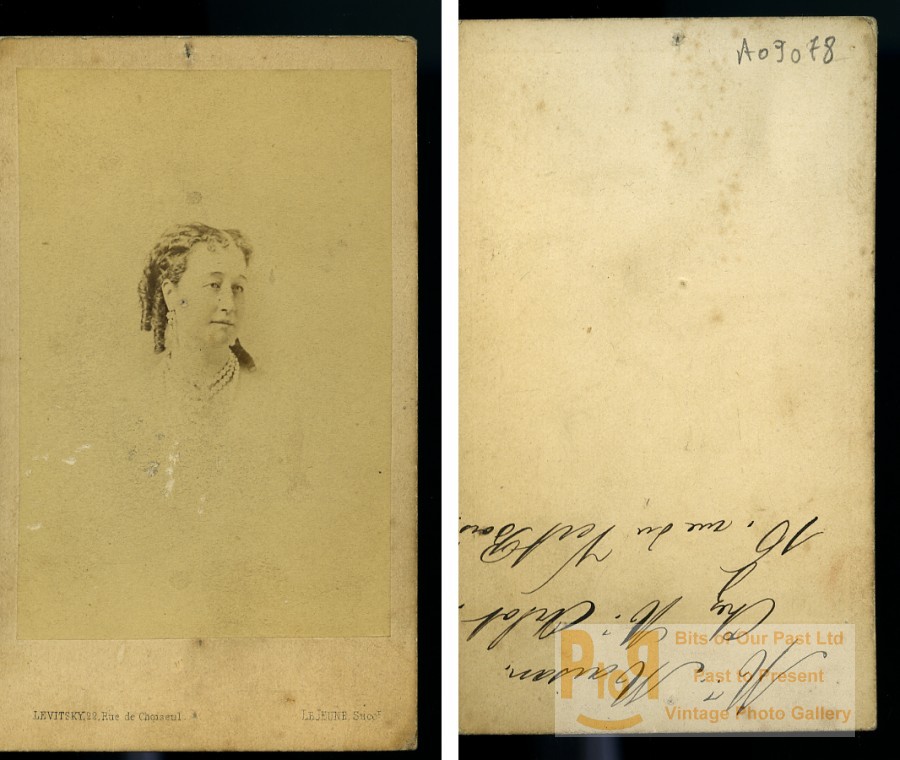 LEVITSKY, 22, Rue de Choiseul.
LEJEUNE, Succr
A09078
Chez Mr
16, rue du Vert Bois
PtoP
Bits of Our Past Ltd
Past to Present
Vintage Photo Gallery